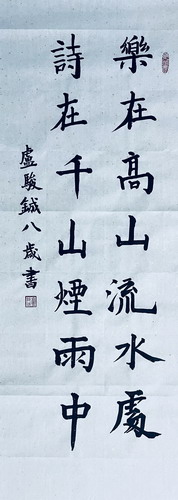 樂在高山流水處
詩在千山煙雨中
盧駿鋮八歲書